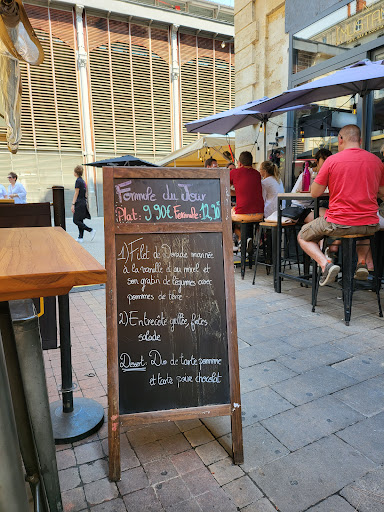 Formule du Jour
Plat: 9.90 Formule: 12.90
1) Filet de Dorade marinée
à la vanille & au miel et
son gratin de légumes avec
pommes de terre
2) Entrecôte grillée, frites
salade
Dessert: Duo de tarte pomme
et tarte poire chocolat